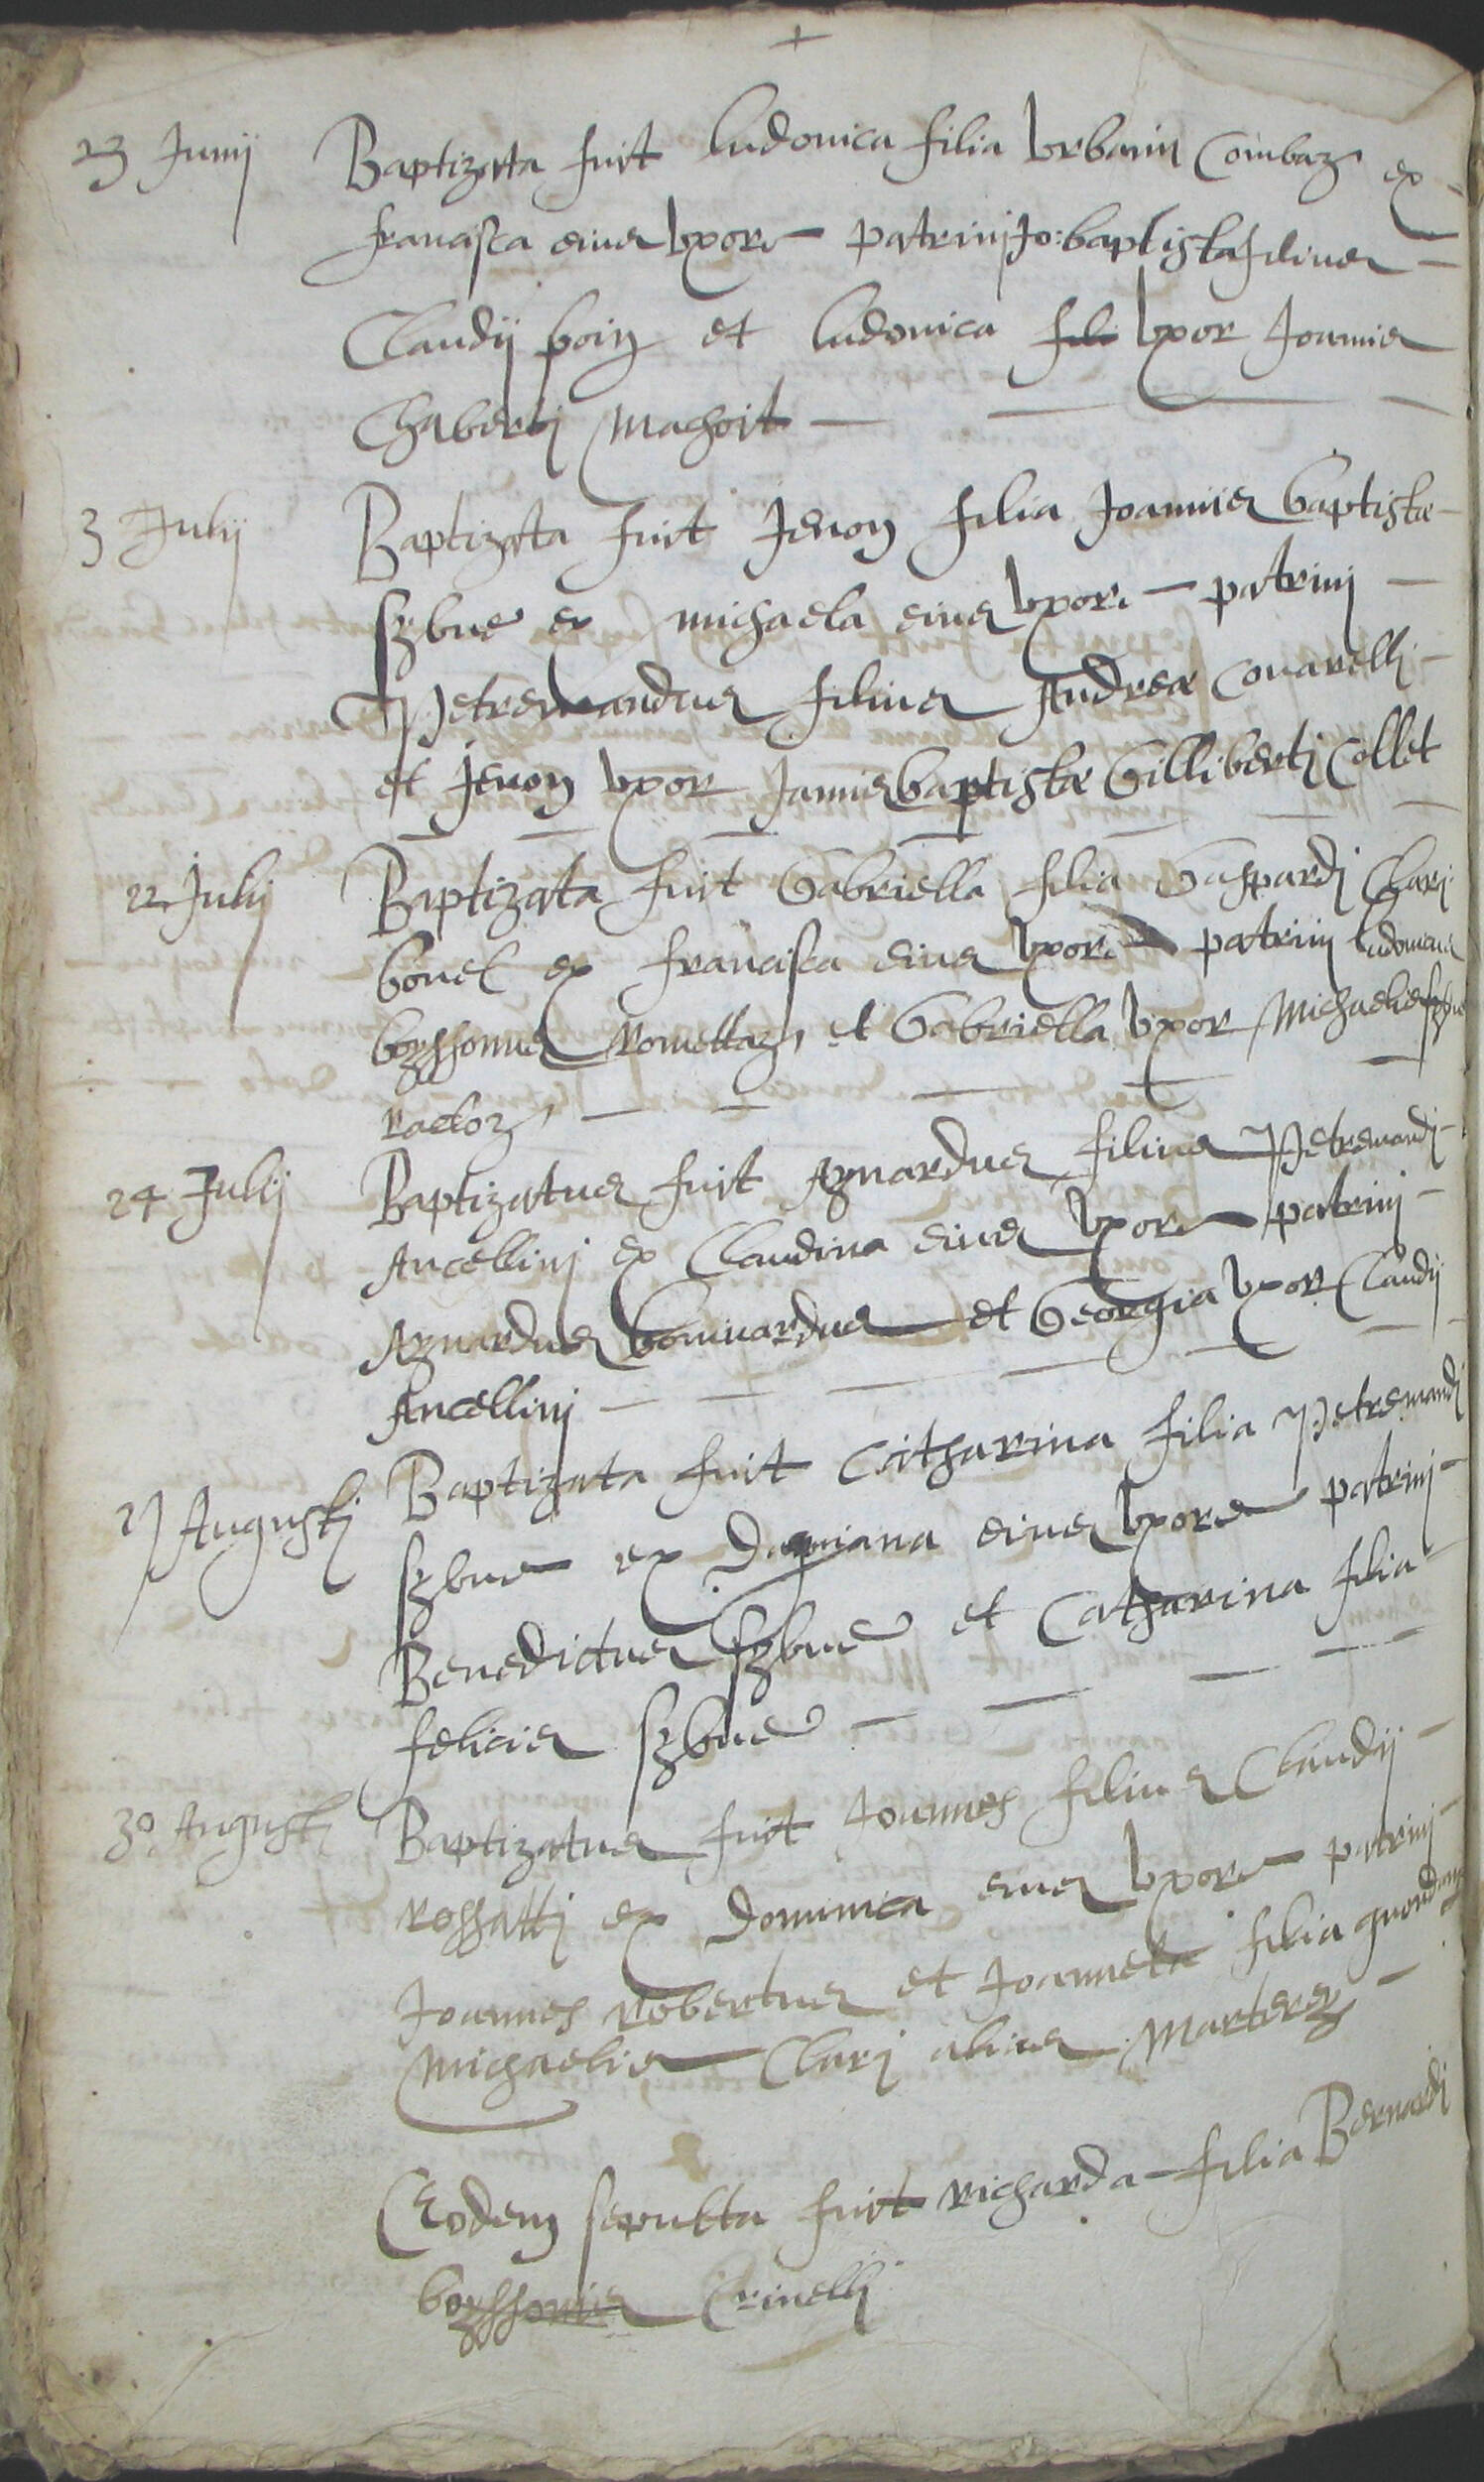 +
23 Junij Baptizata fuit Ludovica filia Urbani Combaz ex
francisca eius uxore patrini Jo: baptista filius
Claudij poin et Ludovica uxor Joannis
Chaberti Machoit
3 Julij Baptizata fuit Jenon filia Joannis baptistæ
sybue ex michaela eius uxore patrini
Petremandus filius Andreæ Covarelli
et Jenon uxor Jannis baptistæ Gilliberti Collet
22 Julij Baptizata fuit Gabriella filia Gaspardi Clari
bonel ex francisca eius uxore patrini Ludovicus
boyssonus rovettaz, et Gabriella uxor Michaelis
raeloz,
24 Julij Baptizatus fuit Aymardus filius Petremandi
Ancellini ex Claudina eius uxore patrini
Aymardus et Georgia uxor Claudij
Ancellini
27 Augusti Baptizata fuit Catharina filia Petremandi
sybue ex Damiana eius uxore patrini
Benedictus sybue et Catharina filia
felicis sybue
30 Augusti Baptizatus fuit Joannes filius Claudij
rossatti ex Dominica eius uxore patrini
Joannes robertus et Joanneta filia quondam
Michaelis Clari alius Marterey
Eodem sepulta fuit richarda filia Bernardi
boyssonis Crinelli